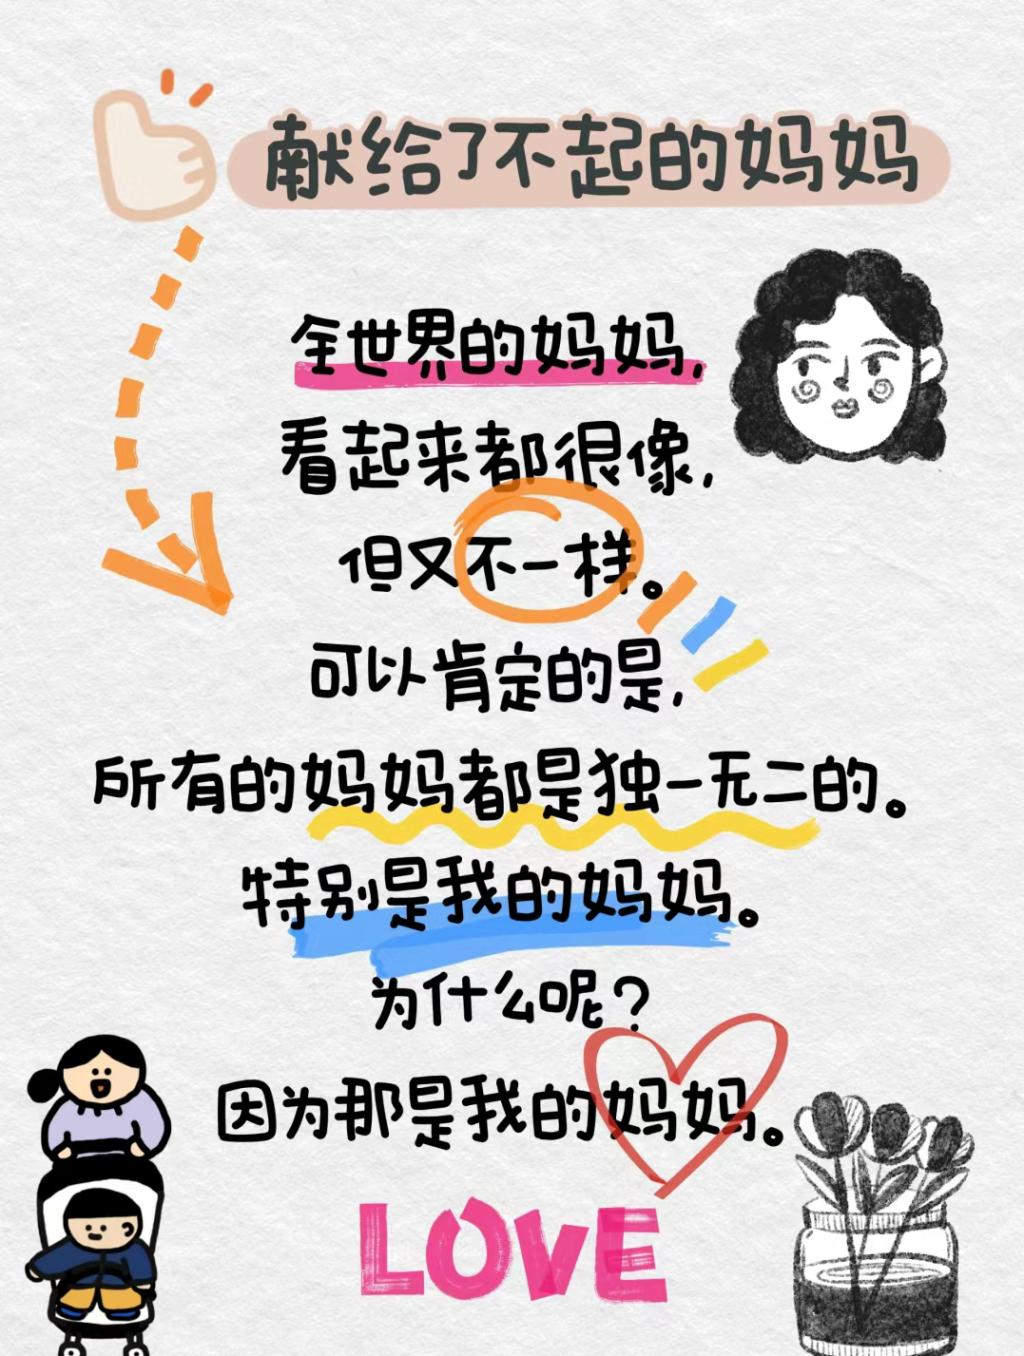 献给了不起的妈妈
全世界的妈妈，
看起来都很像，
但又不一样。
可以肯定的是，
所有的妈妈都是独一无二的。
特别是我的妈妈。
为什么呢？
因为那是我的妈妈。
LOVE